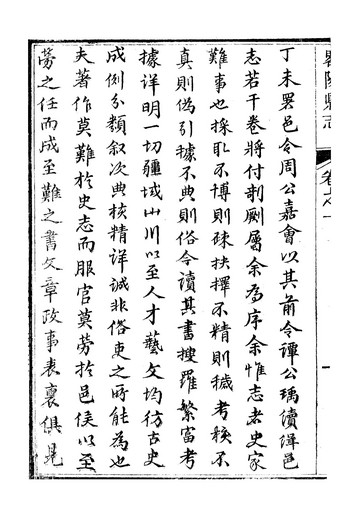 丁未署邑令周公嘉會以其前令譚公瑀續詳邑
志若干卷將付剞劂屬余為序余惟志者史家
難事也採取不博則疎抉擇不精則穢考核不
真則偽引據不典則俗今讀其書搜羅繁富考
據詳明一切疆域山川以至人才藝文均仿古史
成例分類叙次典核精詳誠非俗吏之所能為也
夫著作莫難於史志而服官莫勞於邑侯以至
勞之任而成至難之書文章政事表裏俱見
陽縣志
卷之一